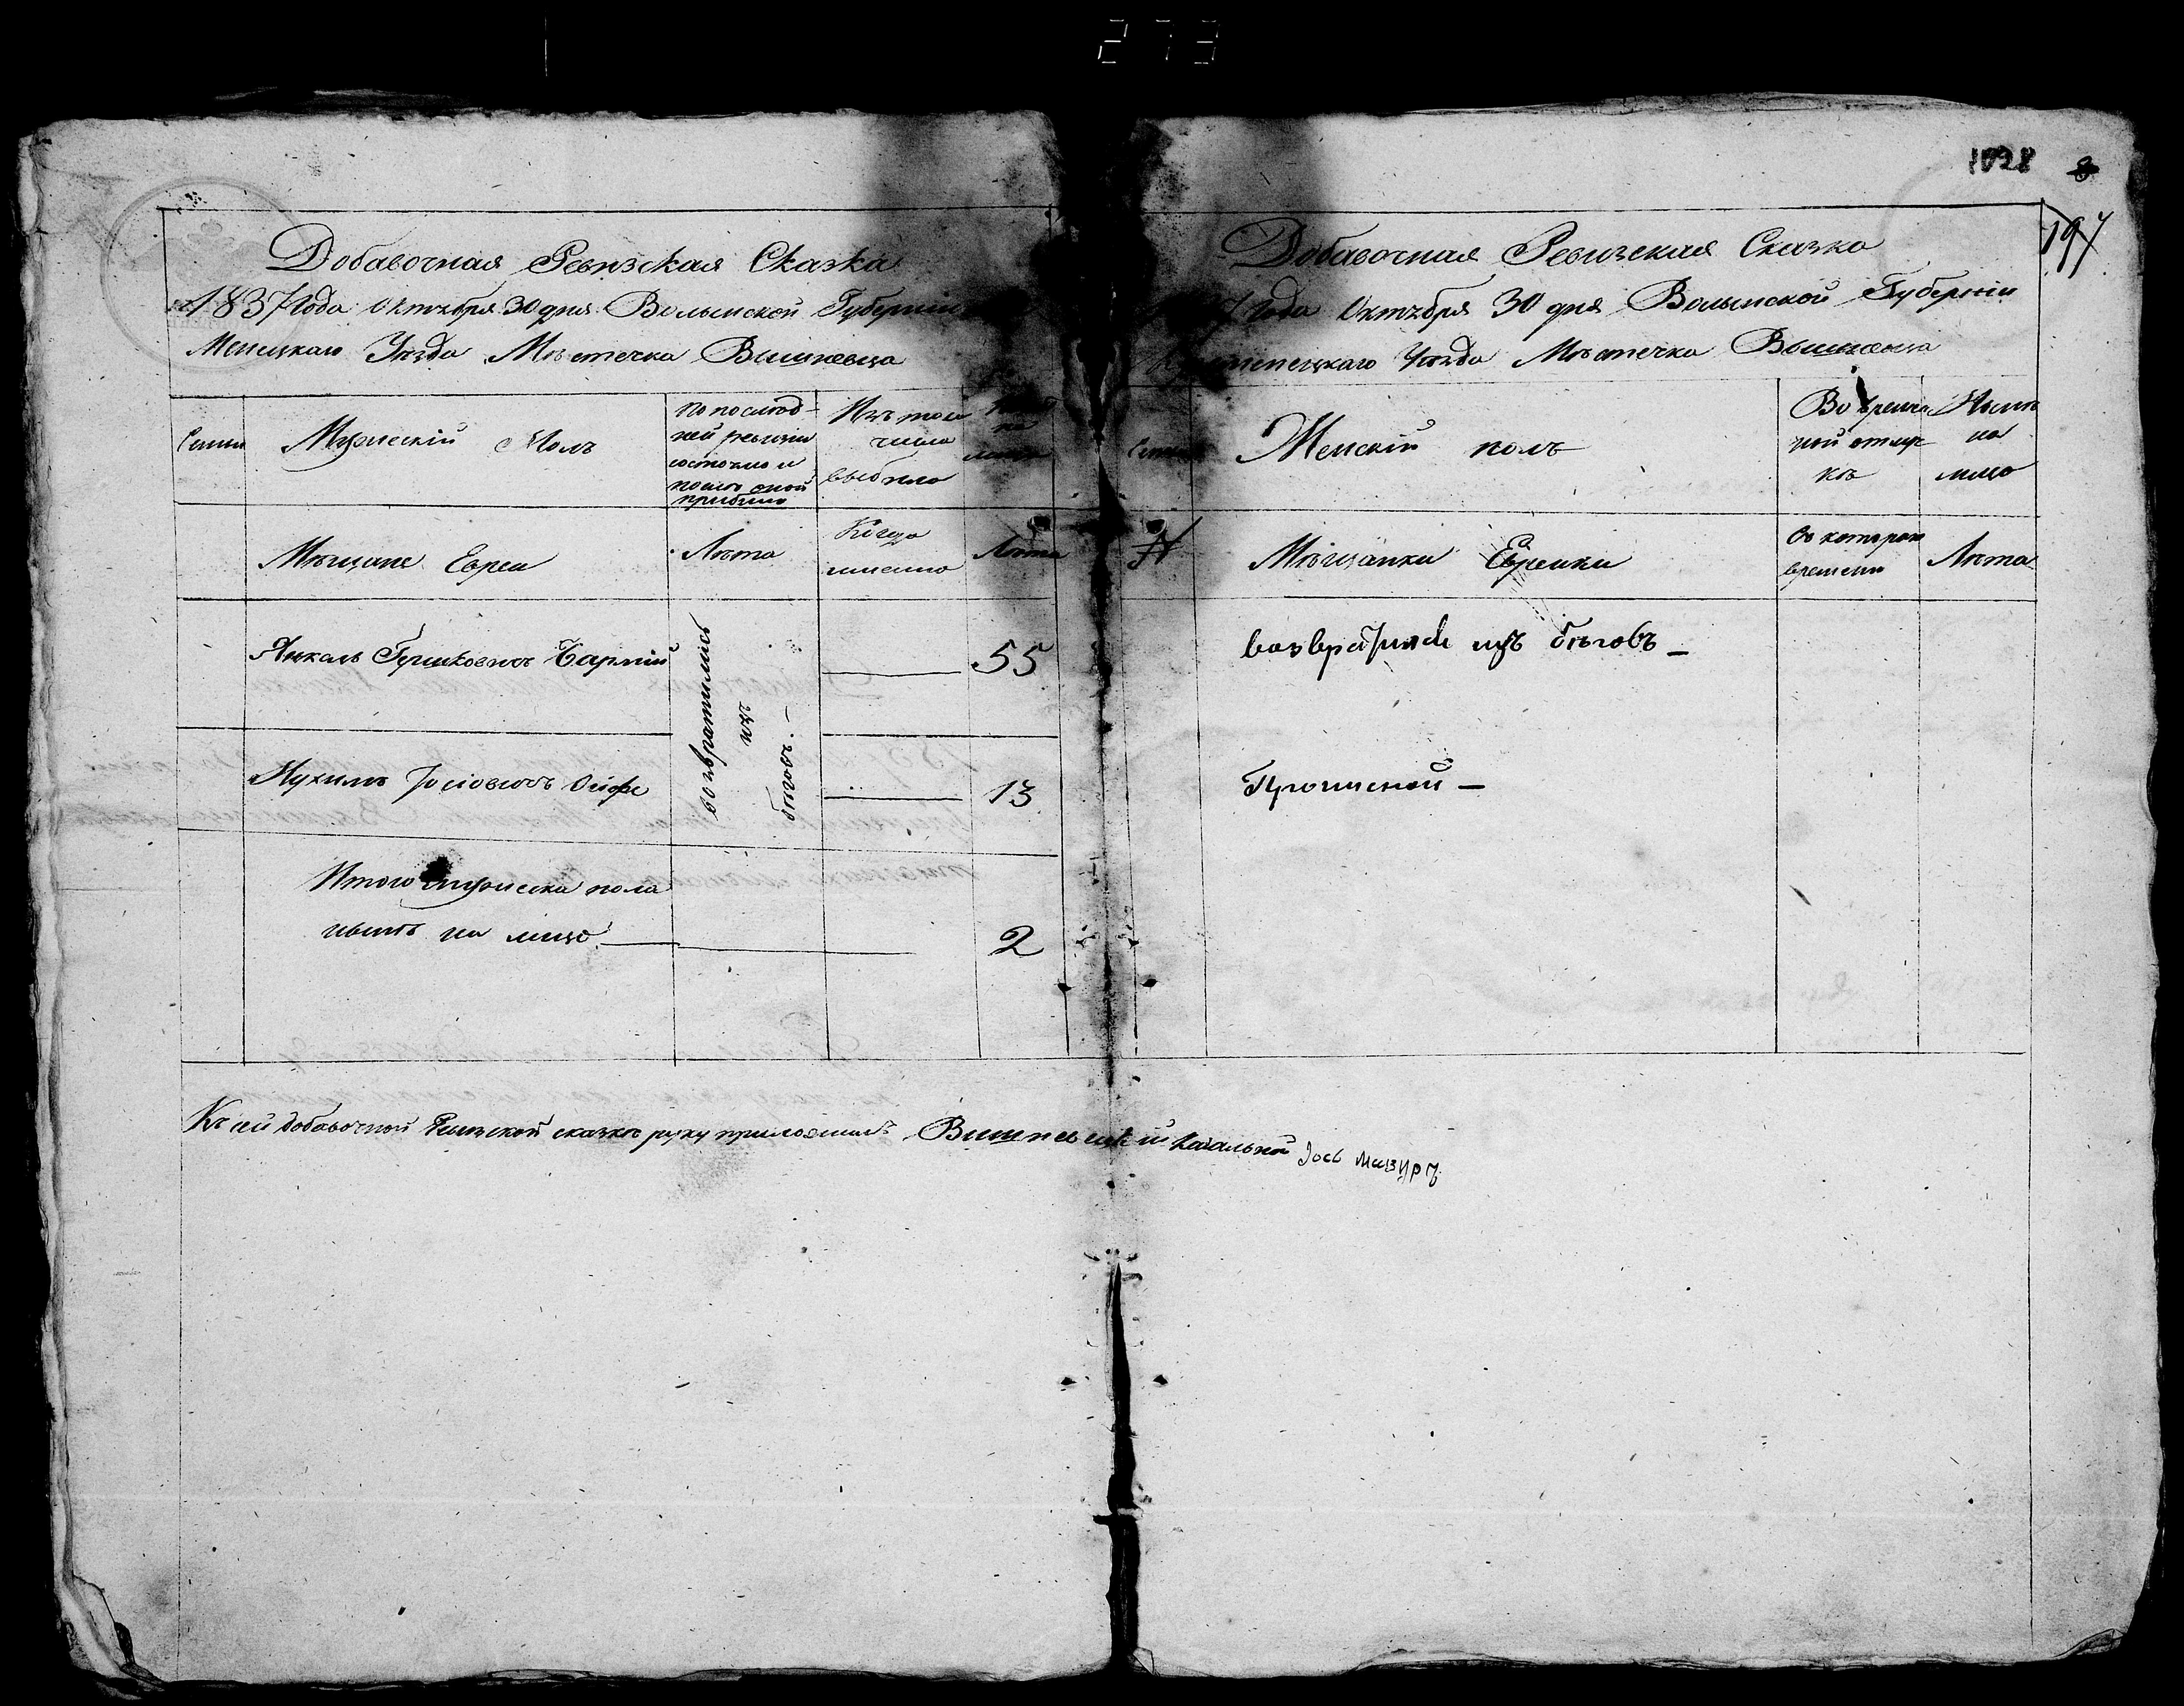 273
1028 8
197
Добавочная Ревизская Сказка
1837 Года Октября 30 дня Волынской Губерніи
менецкаго Уѣзда Мѣстечка Вишневца
Семьи
Мужескій Полъ
По послѣд-
ней ревизіи
состояло и
послѣ оной
прибыло
Изъ того
числа
выбыло
на
лицо
Мѣщане Евреи
Лѣта
Когда
именно
Лѣта
Янкель Гершковичъ
возвратились
изъ
бѣговъ. —
55
Нухимъ Іосіовичъ Ойфе
13
Итого мужеска пола
нынѣ на лицо —
2
Добавочная Ревизская Сказка
Года Октября 30 дня Волынской Губерніи
менецкаго Уѣзда Мѣстечка Вишневца
Семьи
Женскій полъ
Во времен
ной отлуч
кѣ
Нынѣ
на
лицо
Мѣщанки Еврейки
Съ котораго
времени
Лѣта
возвратился изъ бѣговъ —
Къ сей добавочной Ревизской сказкѣ руку приложилъ Вишневецкій Кагальной Іось Мазуръ